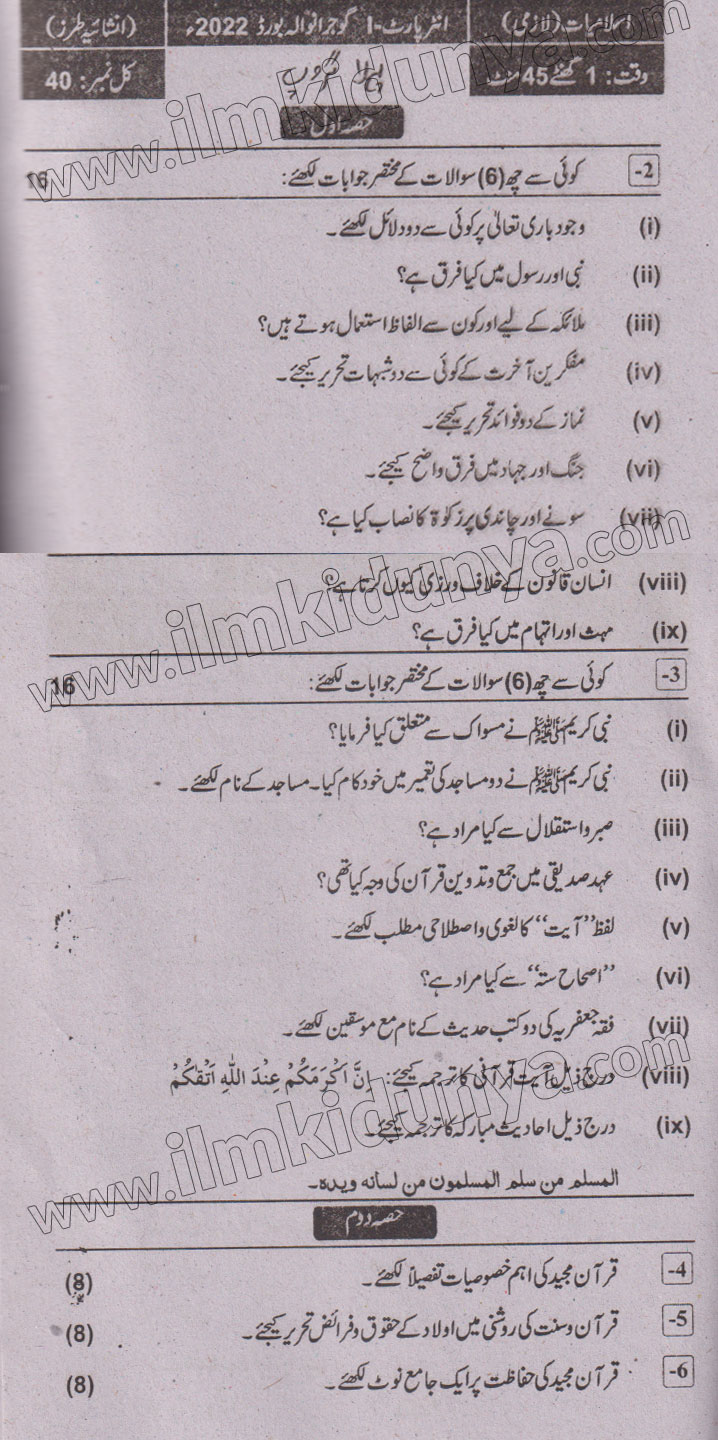 اسلامیات (لازمی) انٹر پارٹ-I گوجرانوالہ بورڈ 2022ء (انشائیہ طرز)
وقت: 1 گھنٹے 45 منٹ پہلا گروپ کل نمبر: 40
حصہ اول
2- کوئی سے چھ (6) سوالات کے مختصر جوابات لکھئے: 16
(i) وجود باری تعالیٰ پر کوئی سے دو دلائل لکھئے۔
(ii) نبی اور رسول میں کیا فرق ہے؟
(iii) ملائکہ کے لیے اور کون سے الفاظ استعمال ہوتے ہیں؟
(iv) مفکرین آخرت کے کوئی سے دو شبہات تحریر کیجئے۔
(v) نماز کے دو فوائد تحریر کیجئے۔
(vi) جنگ اور جہاد میں فرق واضح کیجئے۔
(vii) سونے اور چاندی پر زکوٰۃ کا نصاب کیا ہے؟
(viii) انسان قانون کے خلاف ورزی کیوں کرتا ہے؟
(ix) مہث اور اتہام میں کیا فرق ہے؟
3- کوئی سے چھ (6) سوالات کے مختصر جوابات لکھئے: 16
(i) نبی کریم ﷺ نے مسواک سے متعلق کیا فرمایا؟
(ii) نبی کریم ﷺ نے دو مساجد کی تعمیر میں خود کام کیا۔ مساجد کے نام لکھئے۔
(iii) صبر و استقلال سے کیا مراد ہے؟
(iv) عہد صدیقی میں جمع و تدوین قرآن کی وجہ کیا تھی؟
(v) لفظ ’’آیت‘‘ کا لغوی و اصطلاحی مطلب لکھئے۔
(vi) ’’اصحاح ستہ‘‘ سے کیا مراد ہے؟
(vii) فقہ جعفریہ کی دو کتب حدیث کے نام مع موسقین لکھئے۔
(viii) درج ذیل آیت قرآنی کا ترجمہ کیجئے: اِنَّ اَكْرَمَكُمْ عِنْدَ اللّٰهِ اَتْقٰكُمْ
(ix) درج ذیل احادیث مبارکہ کا ترجمہ کیجئے۔
المسلم من سلم المسلمون من لسانه ويده۔
حصہ دوم
4- قرآن مجید کی اہم خصوصیات تفصیلاً لکھئے۔ (8)
5- قرآن و سنت کی روشنی میں اولاد کے حقوق و فرائض تحریر کیجئے۔ (8)
6- قرآن مجید کی حفاظت پر ایک جامع نوٹ لکھئے۔ (8)
www.ilmkidunya.com
www.ilmkidunya.com
www.ilmkidunya.com